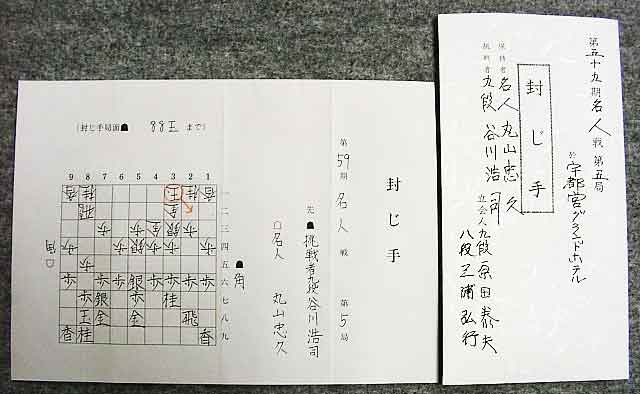 第五十九期名人戦第五局
於 宇都宮グランドホテル
封じ手
保持者 名人 丸山忠久
挑戦者 九段 谷川浩司
立会人 九段 原田泰夫
八段 三浦弘行
封じ手
第59期 名人戦 第5局
先☗挑戦者九段谷川浩司
☖名人 丸山忠久
(封じ手局面☗ 88玉 まで)
9 8 7 6 5 4 3 2 1
香 桂 玉 桂 香 一
飛 金 二
歩 金 銀 歩 三
歩 歩 銀 歩 歩 歩 四
歩 五
歩 歩 歩 銀 歩 歩 歩 歩 六
歩 銀 歩 桂 七
玉 金 金 飛 八
香 桂 香 九
☗角
☖角